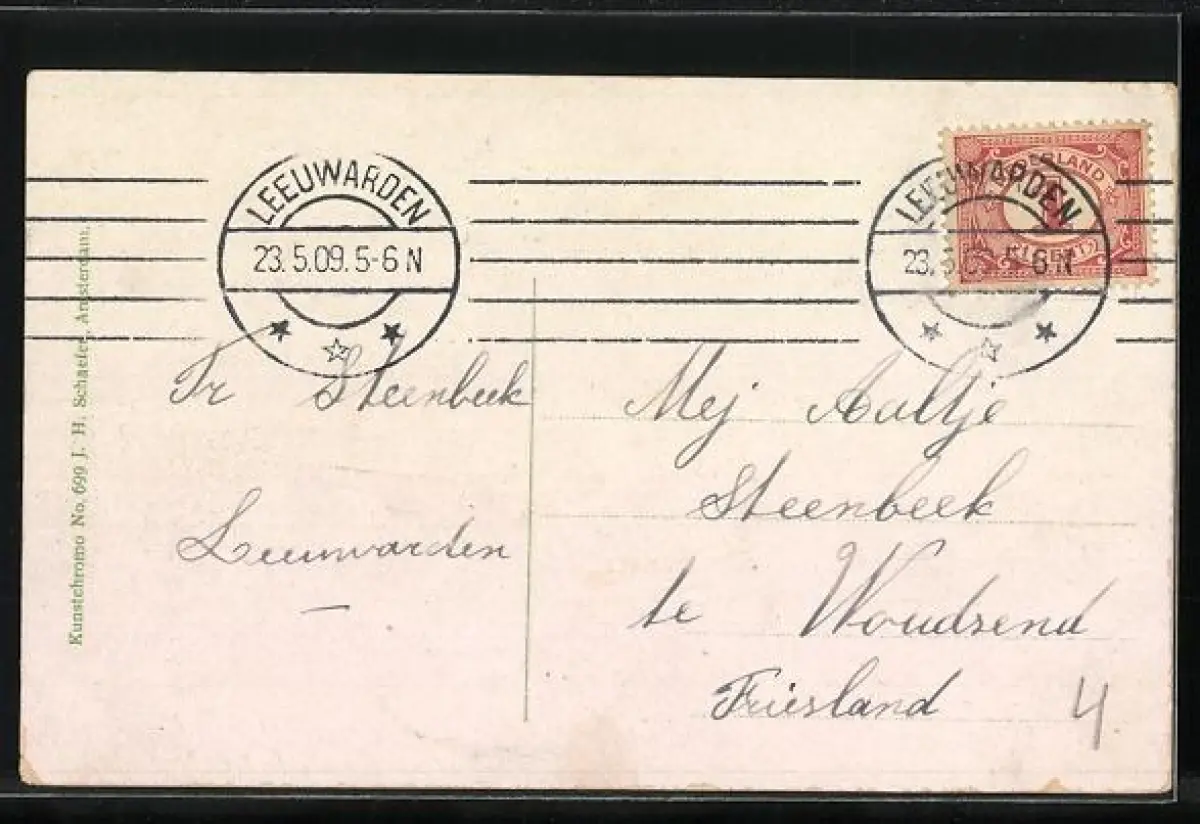 LEEUWARDEN
23.5.09.5-6 N
LEEUWARDEN
23. 5-6 N
NEDERLAND
1
CENT
Kunstchromo No. 699 J. H. Schaefer, Amsterdam.
Fr Steenbeek
Leeuwarden
Mej Aaltje
Steenbeek
te Woudsend
Friesland
4